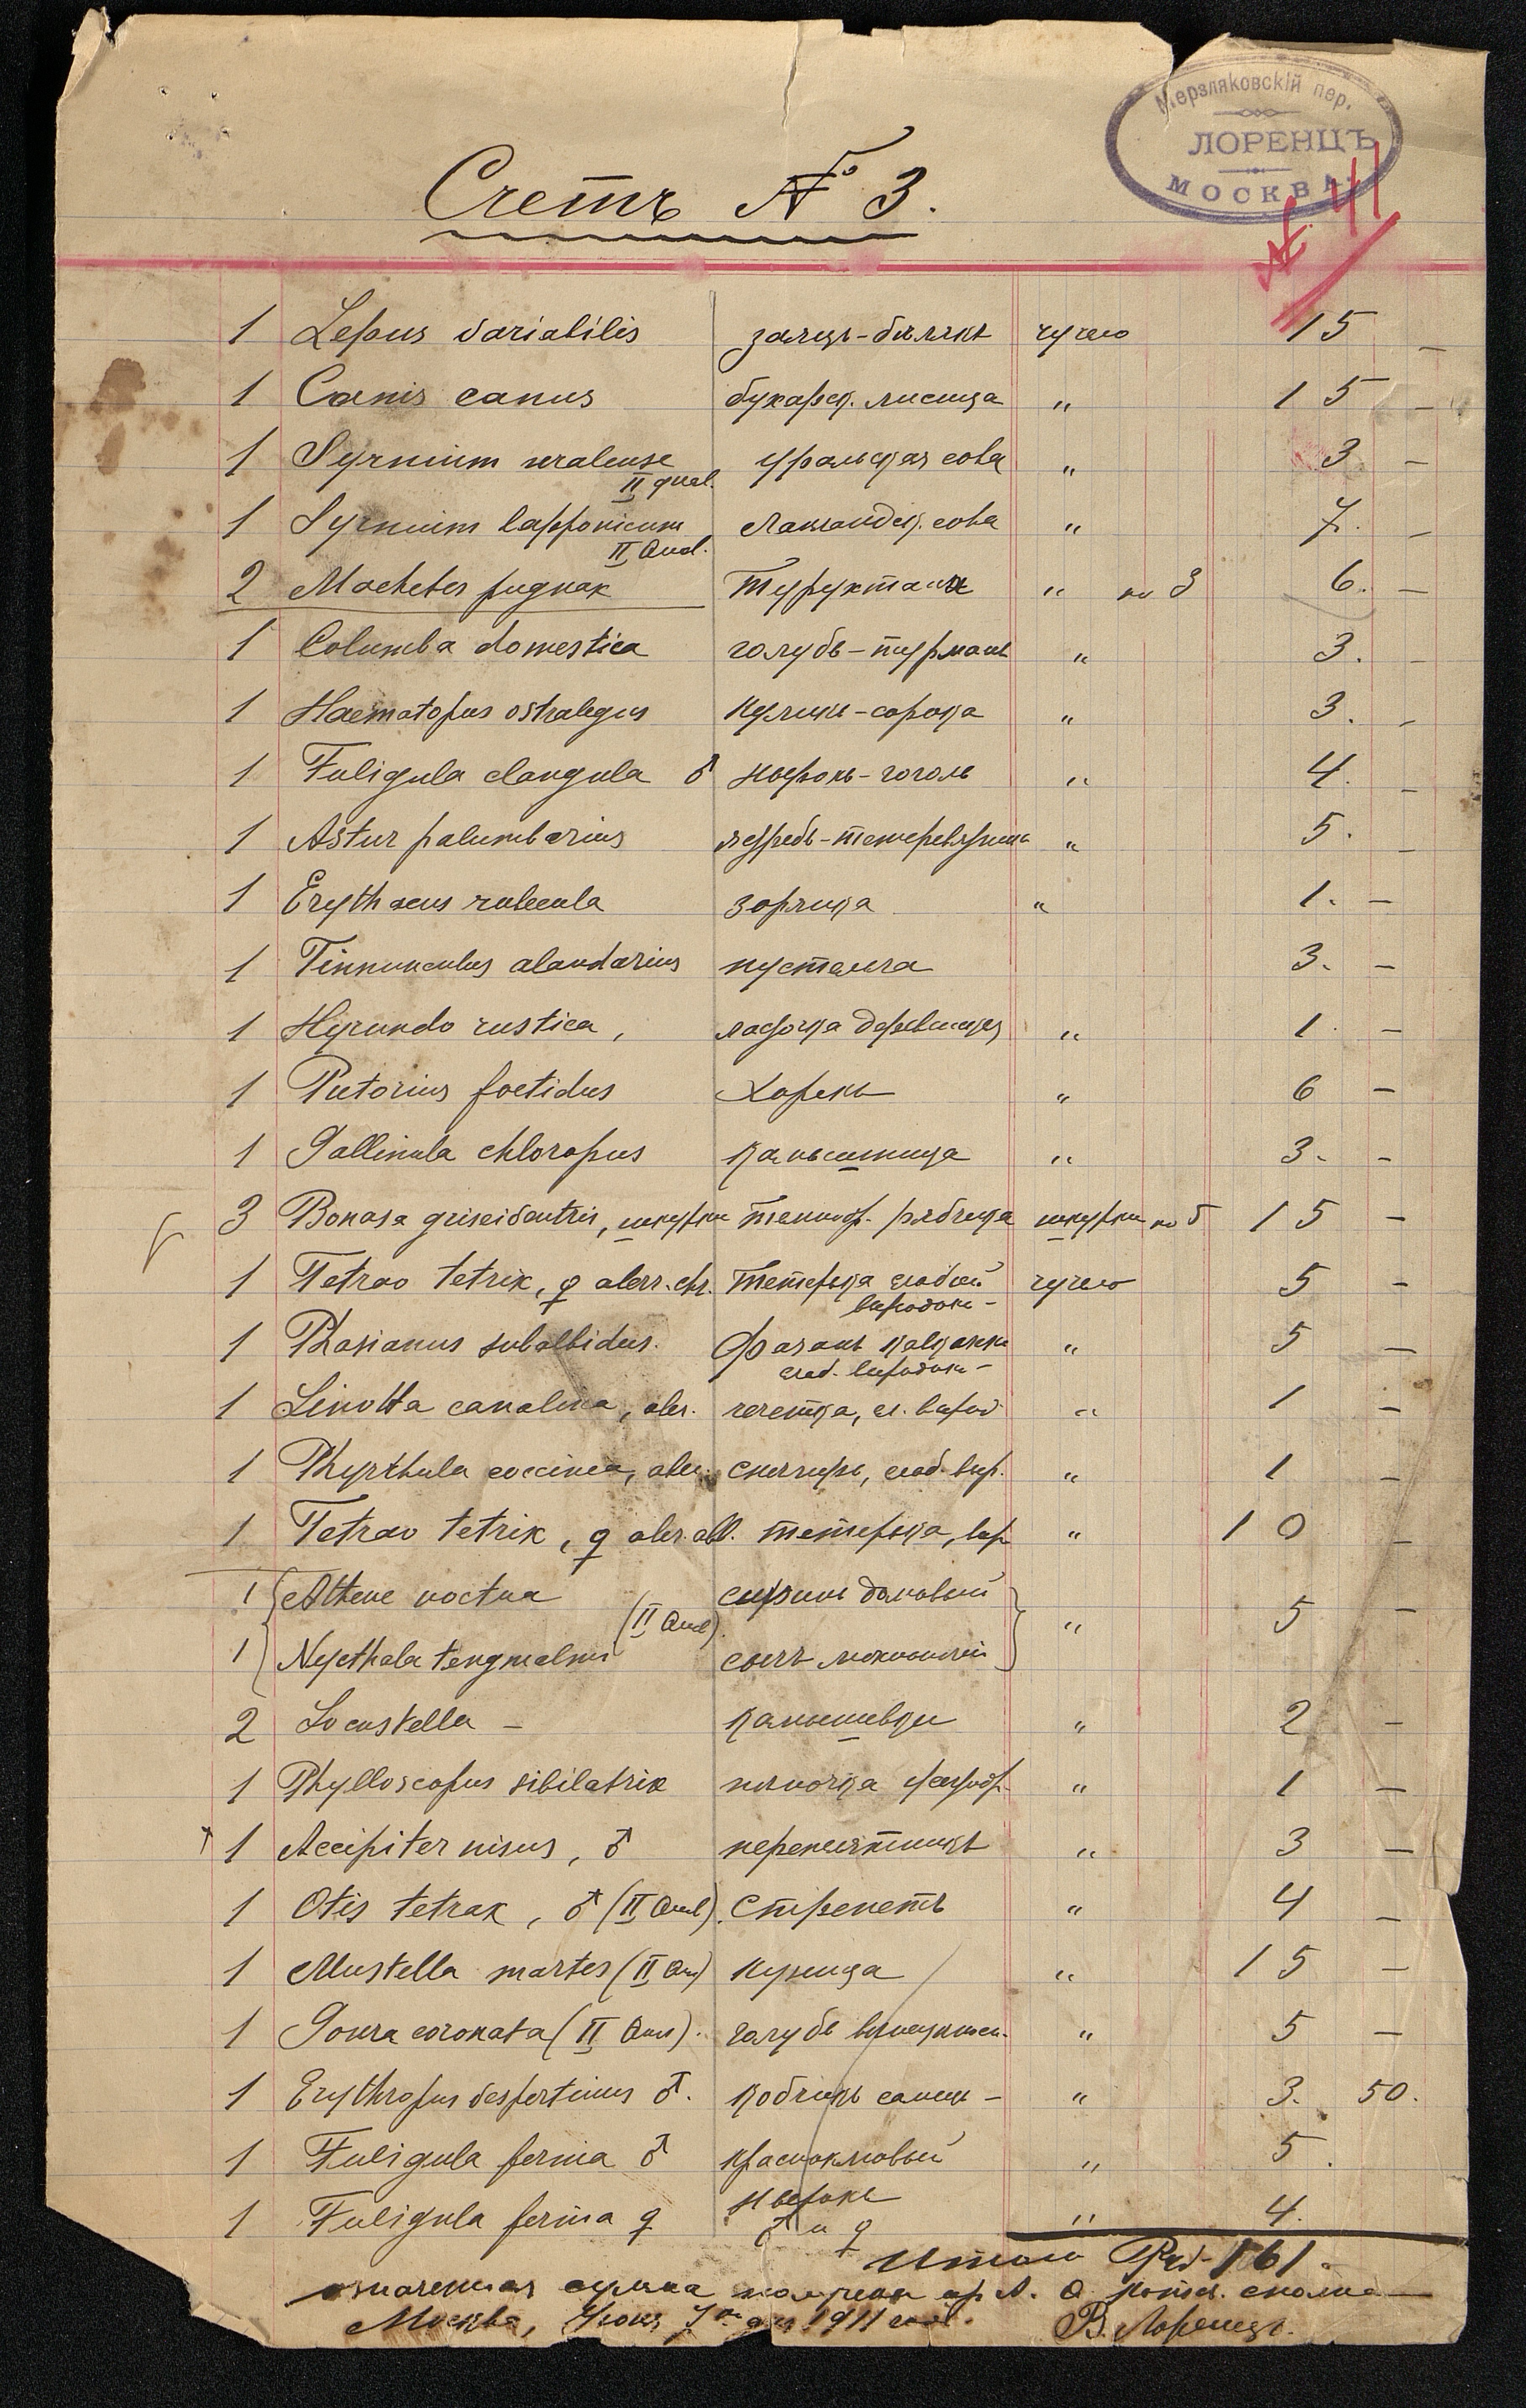 Мерзляковскій пер.
ЛОРЕНЦЪ
МОСКВА.
№ 41
Счетъ № 3.
1 Lepus variabilis заяцъ-бѣлякъ чучело 15 —
1 Canis canus бухарск. лисица " 15 —
1 Syrnium uralense II qual. уральская сова " 3 —
1 Syrnium lapponicum II Qual. Лапландск. сова " 7. —
2 Machetes pugnax Турухтаны " по 3 6. —
1 Columba domestica голубь-турманъ " 3. —
1 Haematopus ostralegus Куликъ-сорока " 3. —
1 Fuligula clangula ♂ нырокъ-гоголь " 4. —
1 Astur palumbarius ястребъ-тетеревятникъ " 5. —
1 Erythacus rubecula зорянка " 1. —
1 Tinnunculus alaudarius пустельга 3. —
1 Hyrundo rustica, ласточка деревенская " 1. —
1 Putorius foetidus Хорекъ " 6 —
1 Gallinula chloropus камышница " 3. —
3 Bonasa griseiventris, шкурки рябчика шкурки по 5 15 —
1 Tetrao tetrix, ♀ aberr. chl. Тетерька слабый чучело 5 —
выродокъ —
1 Phasianus subalbidus. Фазанъ кавказкій " 5 —
слаб. выродокъ —
1 Linotta canabina, aber. чечетка, сл. вырод. " 1 —
1 Phyrrhula coccinea, aber. снегирь, слаб. выр. " 1 —
1 Tetrao tetrix, ♀ aber. alb. тетерька, выр. " 10 —
1 Athene noctua сычикъ домовый
(II Qual). " 5 —
1 Nycthala tengmalmi сычъ мохноногій
2 Locustella — камышевки " 2 —
1 Phylloscopus sibilatrix пѣночка " 1 —
1 Accipiter nisus, ♂ перепелятникъ " 3 —
1 Otis tetrax, ♂ (II Qual). Стрепетъ " 4 —
1 Mustella martes (II Qu) Куница " 15 —
1 Goura coronata (II Qual). голубь вѣнценосн. " 5 —
1 Erythropus vespertinus ♂. кобчикъ самецъ — " 3. 50.
1 Fuligula ferina ♂ красноголовый " 5.
нырокъ
1 Fuligula ferina ♀ ♂ и ♀ " 4.
Итого Руб. 161.
означенная сумма получена А. Ѳ. сполна
Москва, Іюня 7го дня 1911 года. В. Лоренцъ.